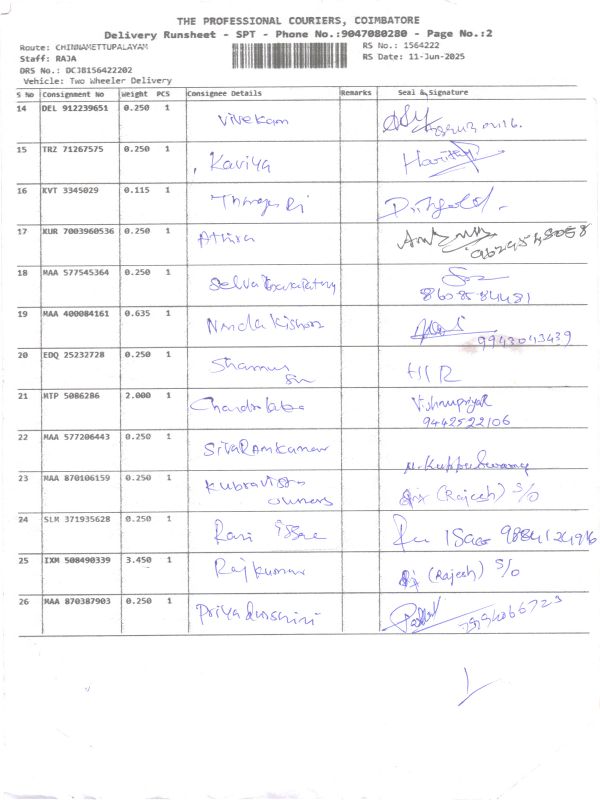 THE PROFESSIONAL COURIERS, COIMBATORE
Delivery Runsheet - SPT - Phone No.:9047080280 - Page No.:2
Route: CHINNAMETTUPALAYAM RS No.: 1564222
Staff: RAJA RS Date: 11-Jun-2025
DRS No.: DCJB156422202
Vehicle: Two Wheeler Delivery
S No Consignment No Weight PCS Consignee Details Remarks Seal & Signature
14 DEL 912239651 0.250 1 Vivekam
15 TRZ 71267575 0.250 1 Kaviya
16 KVT 3345029 0.115 1
17 KUR 7003960536 0.250 1 Athira 9629548058
18 MAA 577545364 0.250 1 Selva
8608584481
19 MAA 400084161 0.635 1 Nanda Kishore
9943043439
20 EDQ 25232728 0.250 1
21 MTP 5086286 2.000 1 Vishnupriya
9442522106
22 MAA 577206443 0.250 1 SivaRamkumar
M. Kuppuswamy
23 MAA 870106159 0.250 1 (Rajesh) S/O
owners
24 SLM 371935628 0.250 1 Ravi
25 IXM 508490339 3.450 1 Rajkumar (Rajesh) S/O
26 MAA 870387903 0.250 1 Priyadarshini